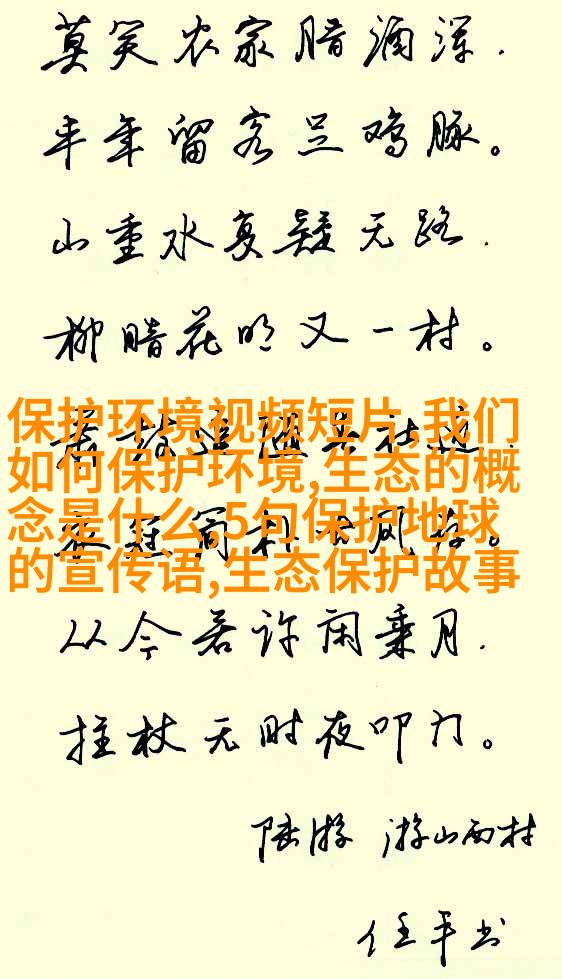 莫笑农家腊酒浑.
丰年留客足鸡豚。
山重水复疑无路.
柳暗花明又一村。
保护环境视频短片,我们
如何保护环境,生态的概
念是什么,5句保护地球
的宣传语,生态保护故事
从今若许闲乘月.
拄杖无时夜叩门。
陆游 游山西村
任平书